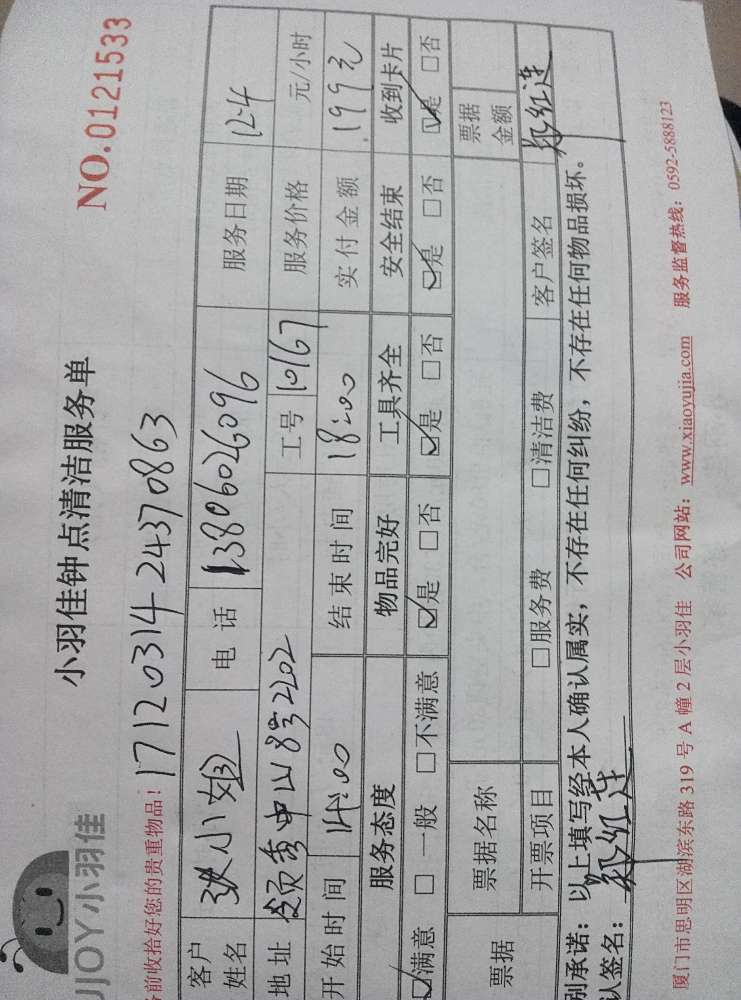 UJOY小羽佳
小羽佳钟点清洁服务单
NO.0121533
前收拾好您的贵重物品! 1712031424370863
客户姓名 小姐 电话 13806026096 服务日期 12-4
地址 领秀中山8号2202 工号 10167 服务价格 元/小时
开始时间 14:00 结束时间 18:00 实付金额 199元
服务态度 物品完好 工具齐全 安全结束 收到卡片
☑满意 □一般 □不满意 ☑是 □否 ☑是 □否 ☑是 □否 ☑是 □否
票据 票据名称 票据金额
开票项目 □服务费 □清洁费 客户签名 红连
别承诺:以上填写经本人确认属实,不存在任何纠纷,不存在任何物品损坏。
认签名: 红连
厦门市思明区湖滨东路 319 号 A 幢 2 层小羽佳 公司网站:www.xiaoyujia.com 服务监督热线:0592-5888123